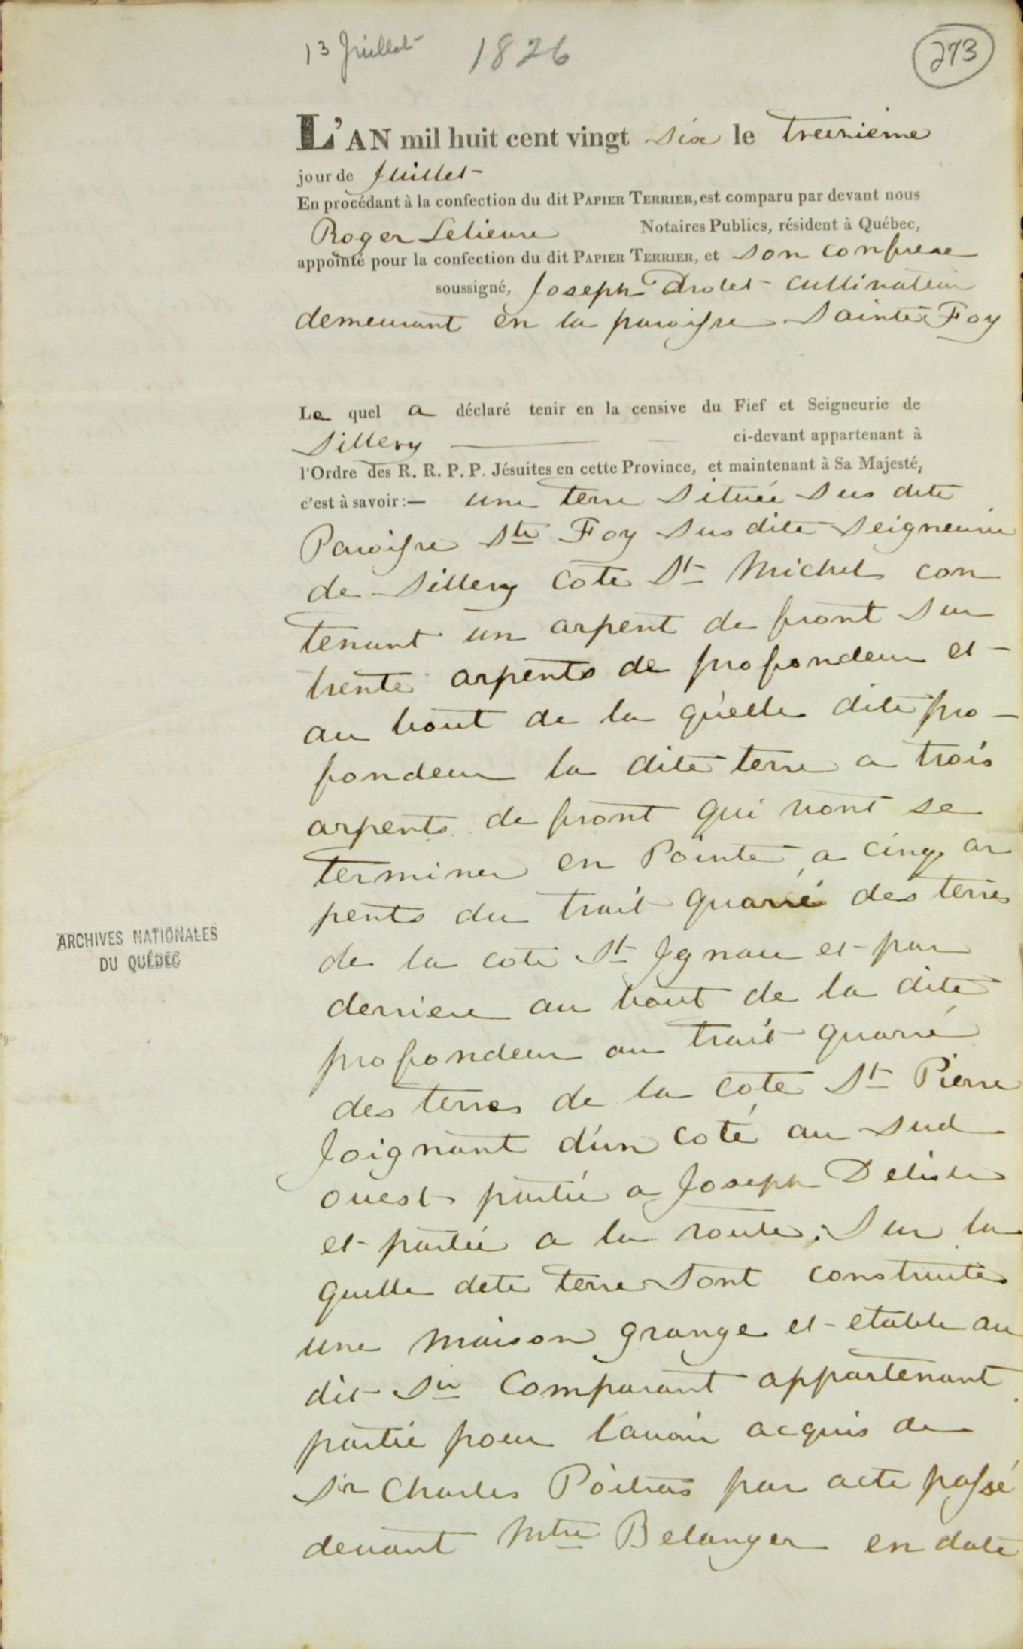 13 Juillet 1826 273
L'AN mil huit cent vingt six le treizieme
jour de Juillet
En procédant à la confection du dit PAPIER TERRIER, est comparu par devant nous
Roger Lelievre Notaires Publics, résident à Québec,
appointé pour la confection du dit PAPIER TERRIER, et son confrere
soussigné, Joseph Drolet cultivateur
demeurant en la paroisse Sainte Foy
Le quel a déclaré tenir en la censive du Fief et Seigneurie de
Sillery ci-devant appartenant à
l'Ordre des R. R. P. P. Jésuites en cette Province, et maintenant à Sa Majesté,
c'est à savoir:— une terre située sus dite
Paroisse Ste Foy sus dite Seigneurie
de Sillery Cote St Michel con
tenant un arpent de front sur
trente arpents de profondeur et
au bout de la quelle dite pro-
fondeur la dite terre a trois
arpents de front qui vont se
terminer en Pointe a cinq ar
pents du trait quarré des terres
de la cote St Ignace et par
derriere au bout de la dite
profondeur au trait quarré
des terres de la cote St Pierre
Joignant d'un coté au sud
ouest partie a Joseph Delisle
et partie a la route; Sur la
quelle dete terre sont construites
une maison grange et etable au
dit Sr Comparant appartenant
partie pour l'avoir acquis de
Sr Charles Poitras par acte passé
devant Mtre Belanger en date
ARCHIVES NATIONALES
DU QUÉBEC